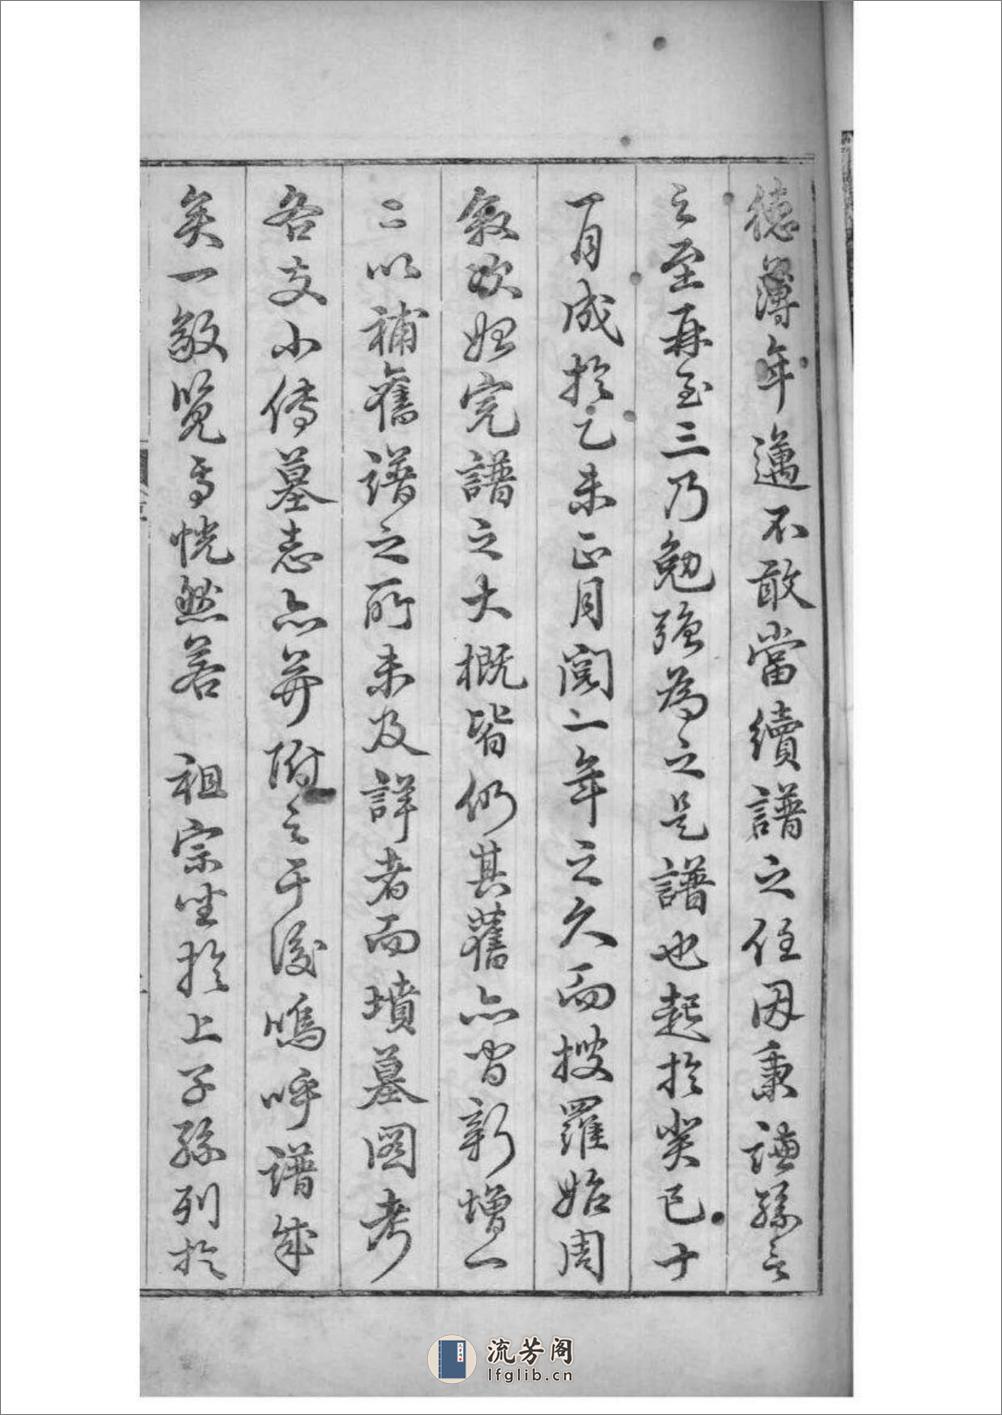 德薄年邁不敢當續譜之任因秉謙孫言
之至再至三乃勉強為之是譜也起於癸巳十
一月成於乙未正月閱二年之久而搜羅始周
敘次始完譜之大概皆仍其舊亦皆新增一
二以補舊譜之所未及詳者而墳墓圖考
各支小傳墓志亦并附之于後嗚呼譜成
矣一啟覽焉恍然若　祖宗坐於上子孫列於
流芳阁
lfglib.cn